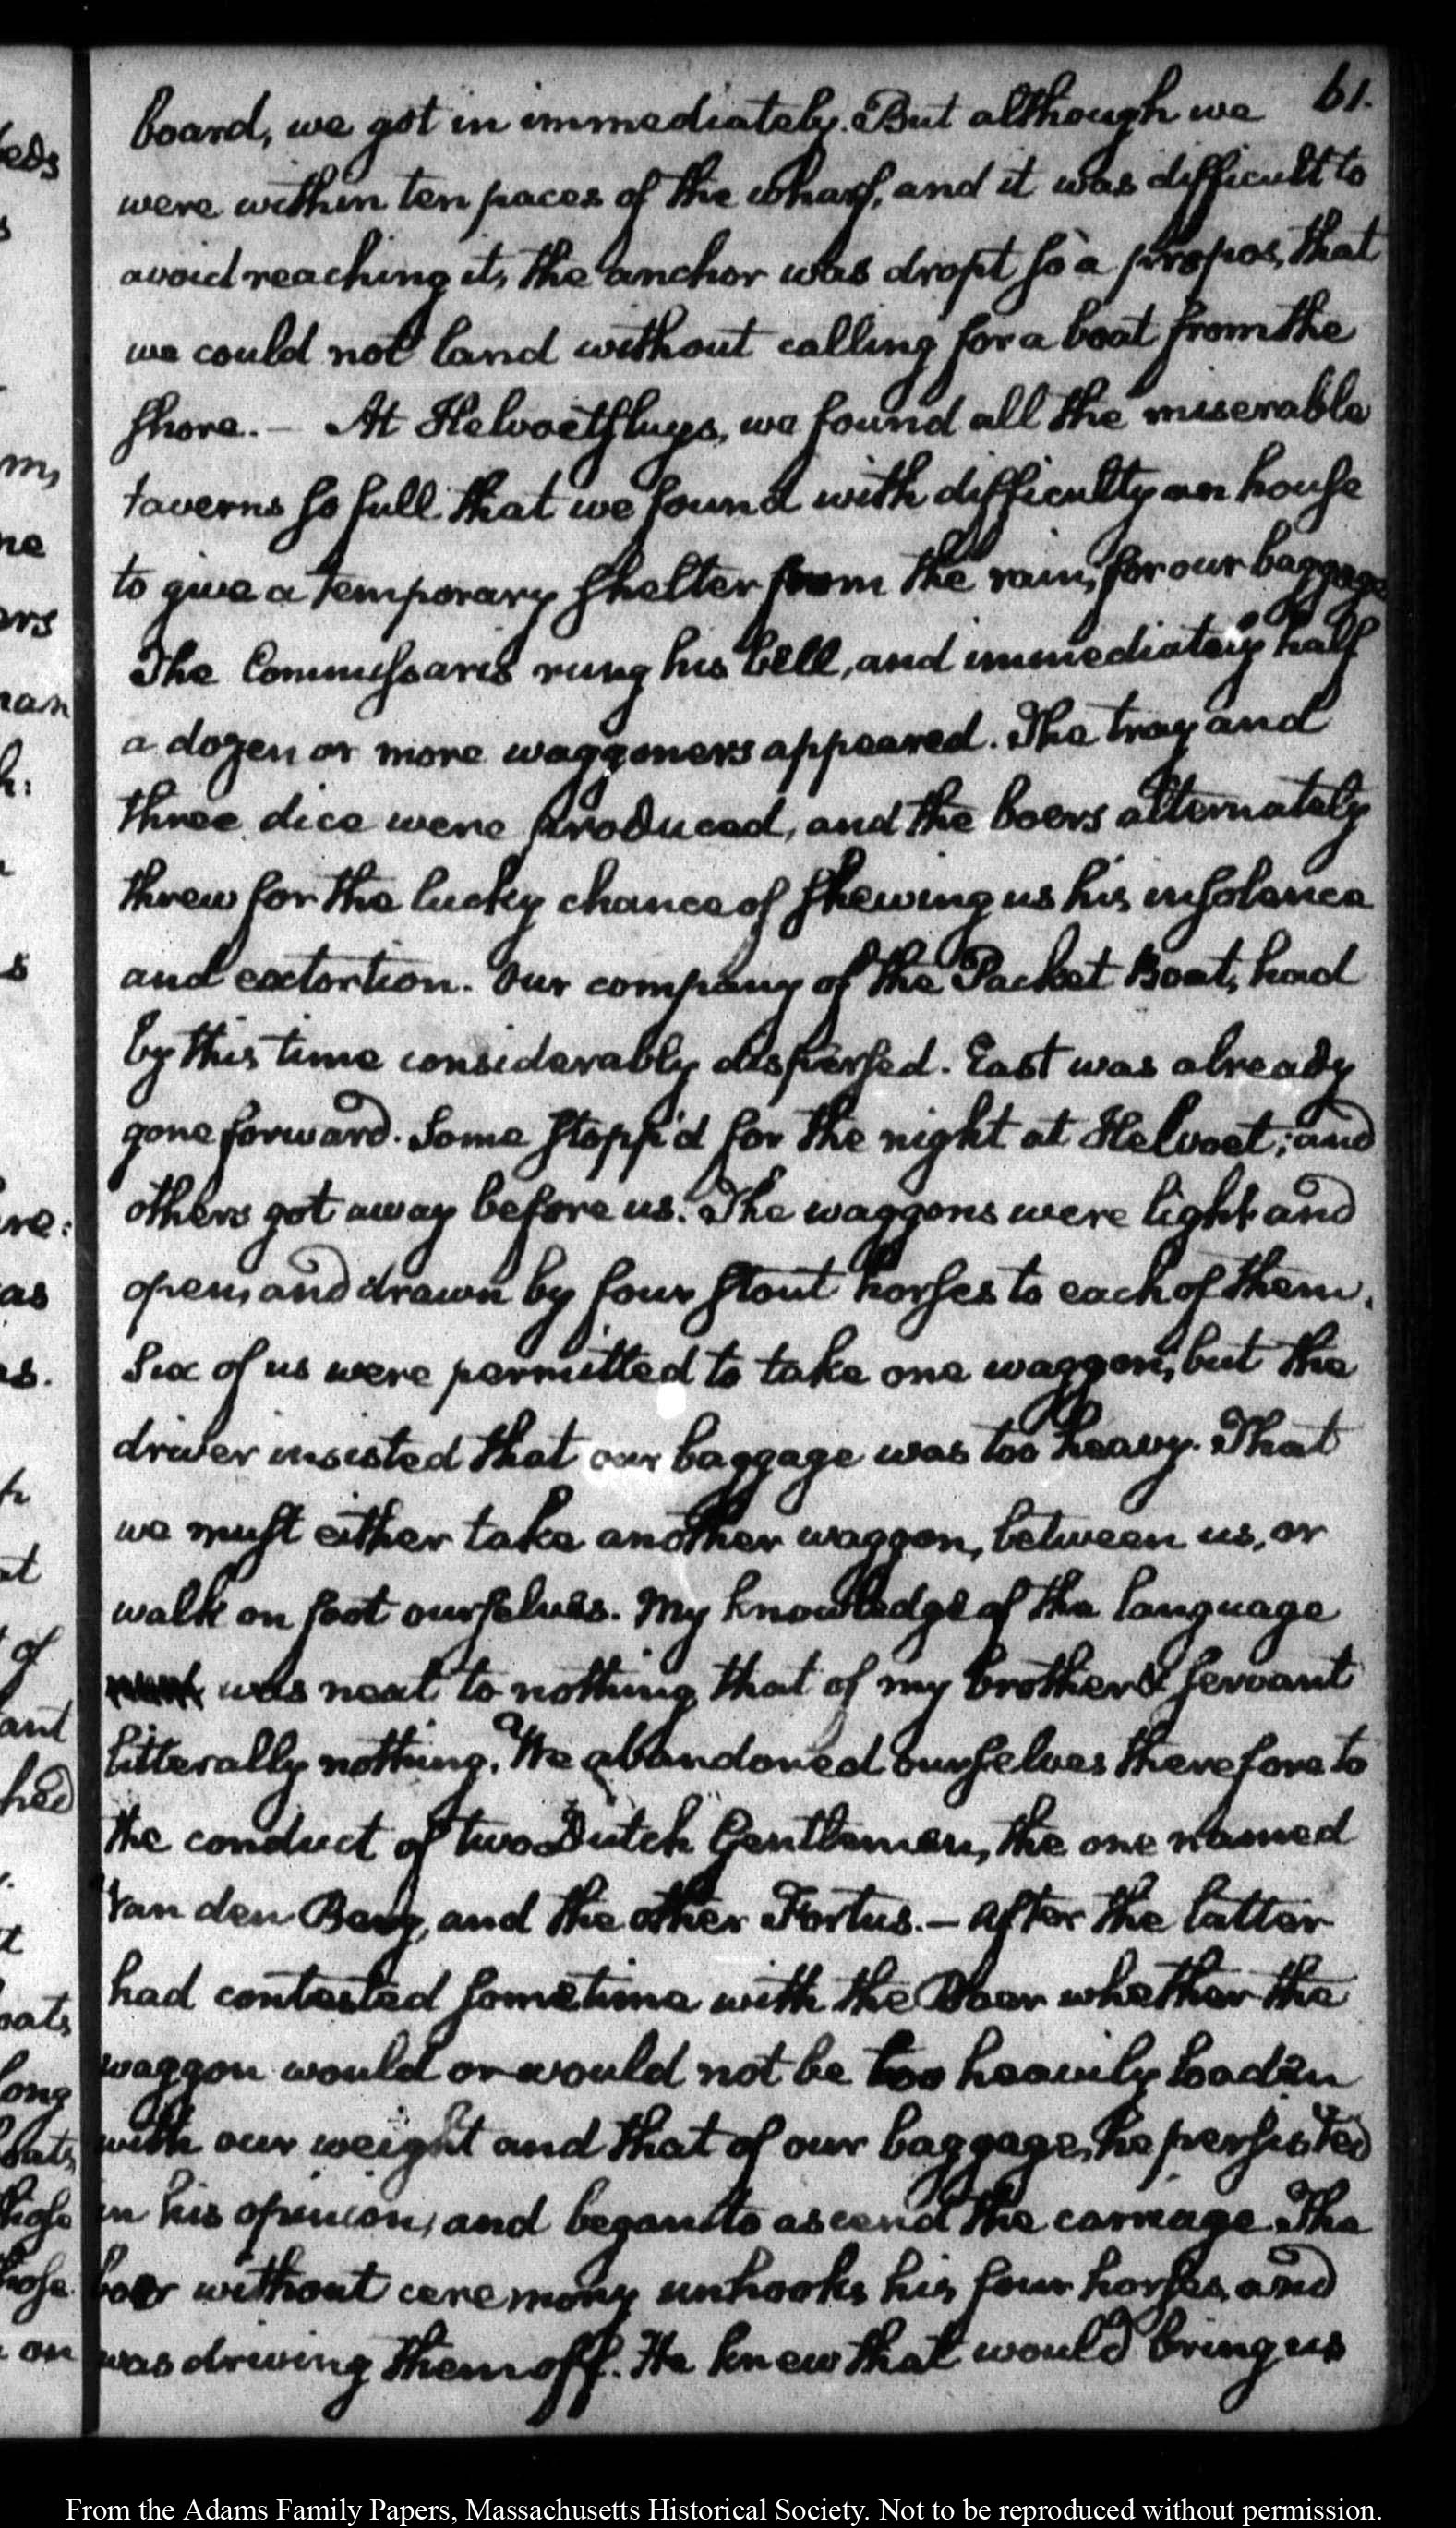 61.
board, we got in immediately. But although we
were within ten paces of the wharf, and it was difficult to
avoid reaching it, the anchor was dropt so a propos, that
we could not land without calling for a boat from the
shore. — At Helvoetsluys, we found all the miserable
taverns so full that we found with difficulty an house
to give a temporary shelter from the rain, for our baggage
The Commissaris rung his bell, and immediately half
a dozen or more waggoners appeared. The tray and
three dice were produced, and the boers alternately
threw for the lucky chance of shewing us his insolence
and extortion. Our company of the Packet Boat, had
by this time considerably dispersed. East was already
gone forward. Some stopp'd for the night at Helvoet; and
others got away before us. The waggons were light and
open, and drawn by four stout horses to each of them.
Six of us were permitted to take one waggon, but the
driver insisted that our baggage was too heavy. That
we must either take another waggon, between us, or
walk on foot ourselves. My knowledge of the language
was next to nothing, that of my brother & servant
litterally nothing. We abandoned ourselves therefore to
the conduct of two Dutch Gentlemen, the one named
Van den Berg, and the other Fortus. — After the latter
had contested sometime with the Boer whether the
waggon would or would not be too heavily loaden
with our weight and that of our baggage, he persisted
in his opinion, and began to ascend the carriage. The
boer without ceremony unhooks his four horses, and
was driving them off. He knew that would bring us
eds
s
m,
ne
ers
man
h:
s
re:
as
s.
h
at
of
ant
hed
t
oats
long
oats
those
those
on
From the Adams Family Papers, Massachusetts Historical Society. Not to be reproduced without permission.